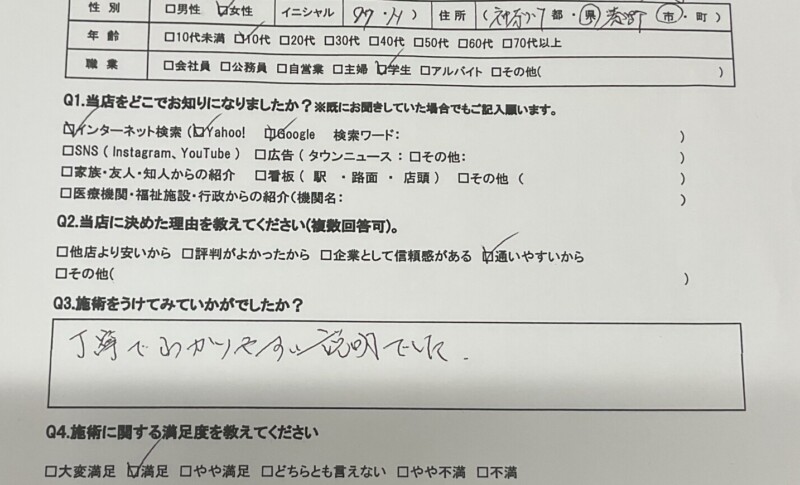 性別 □男性 ☑女性 イニシャル ・ ) 住所 ( 神奈川 都・県 秦野 市・町 )
年齢 □10代未満 ☑10代 □20代 □30代 □40代 □50代 □60代 □70代以上
職業 □会社員 □公務員 □自営業 □主婦 ☑学生 □アルバイト □その他( )
Q1.当店をどこでお知りになりましたか?※既にお聞きしていた場合でもご記入願います。
☑インターネット検索 (☑Yahoo! ☑Google 検索ワード: )
□SNS ( Instagram、YouTube ) □広告 ( タウンニュース : □その他: )
□家族・友人・知人からの紹介 □看板 ( 駅 ・路面 ・ 店頭 ) □その他 ( )
□医療機関・福祉施設・行政からの紹介(機関名: )
Q2.当店に決めた理由を教えてください(複数回答可)。
□他店より安いから □評判がよかったから □企業として信頼感がある ☑通いやすいから
□その他( )
Q3.施術をうけてみていかがでしたか?
丁寧でわかりやすい説明でした.
Q4.施術に関する満足度を教えてください
□大変満足 ☑満足 □やや満足 □どちらとも言えない □やや不満 □不満